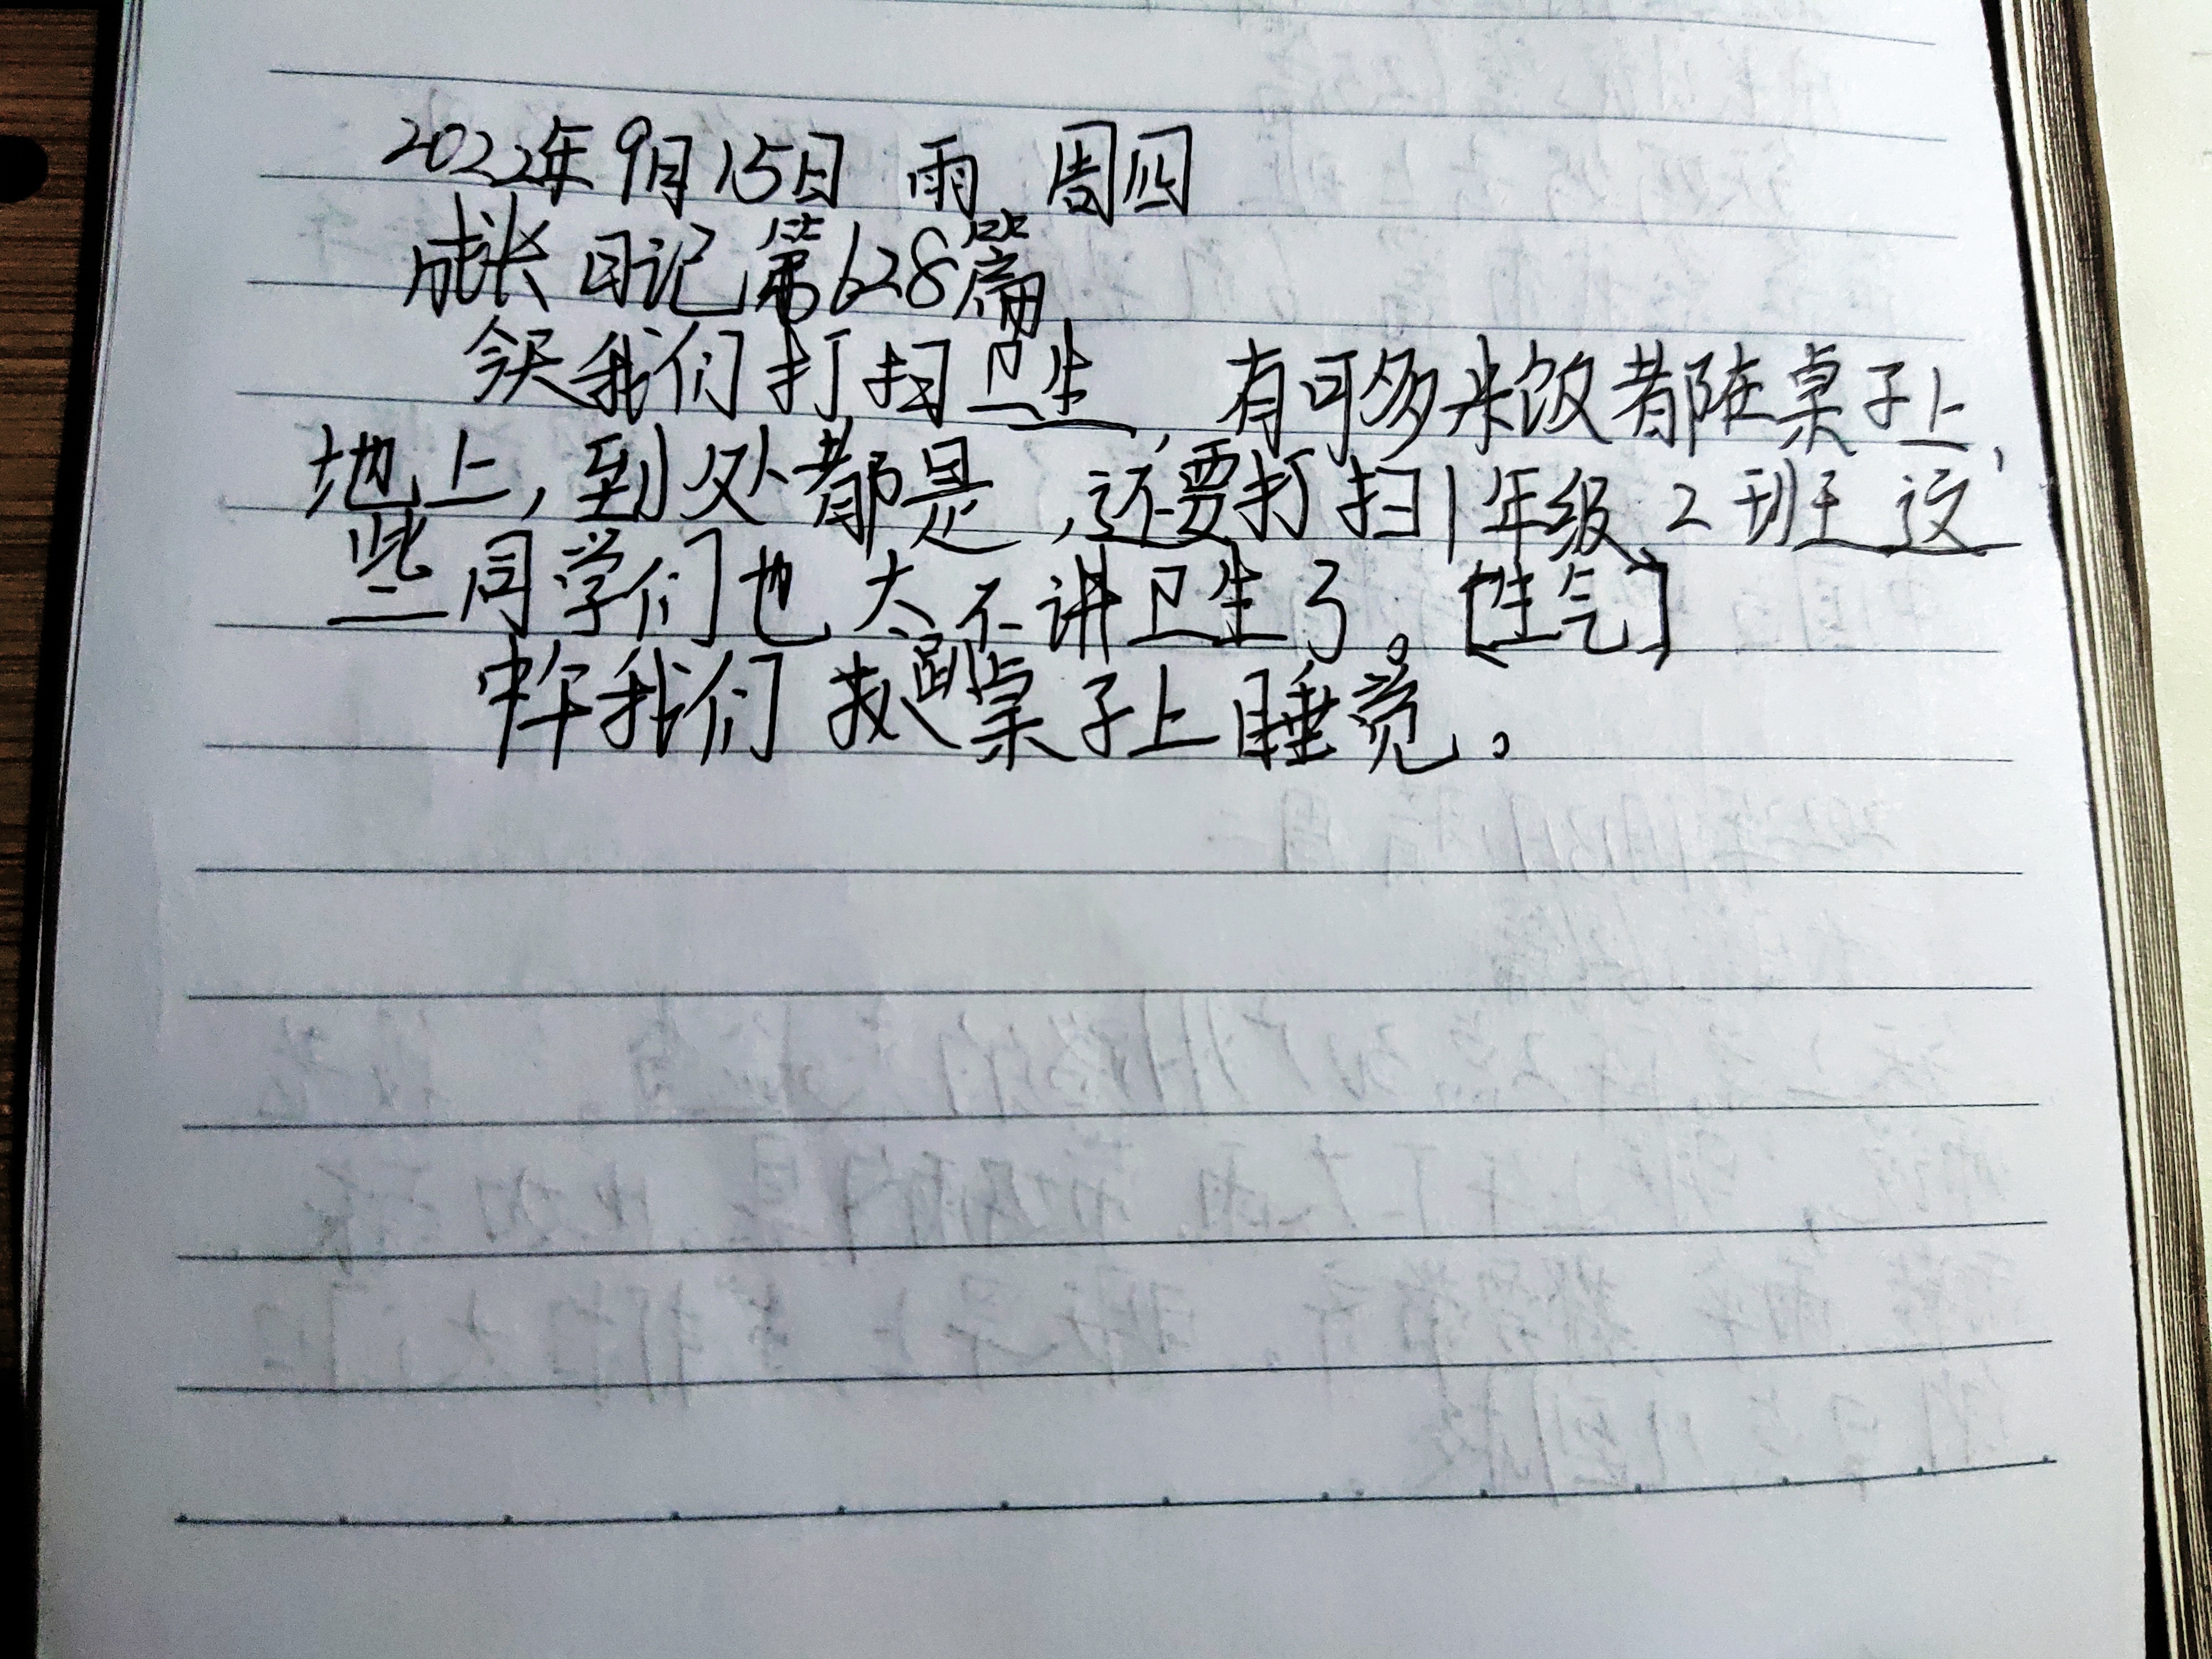 2022年9月15日 雨 周四
成长日记第628篇
今天我们打扫卫生，有可多米饭都在桌子上，
地上，到处都是，还要打扫1年级2班这
些同学们也太不讲卫生了。[生气]
中午我们趴桌子上睡觉。